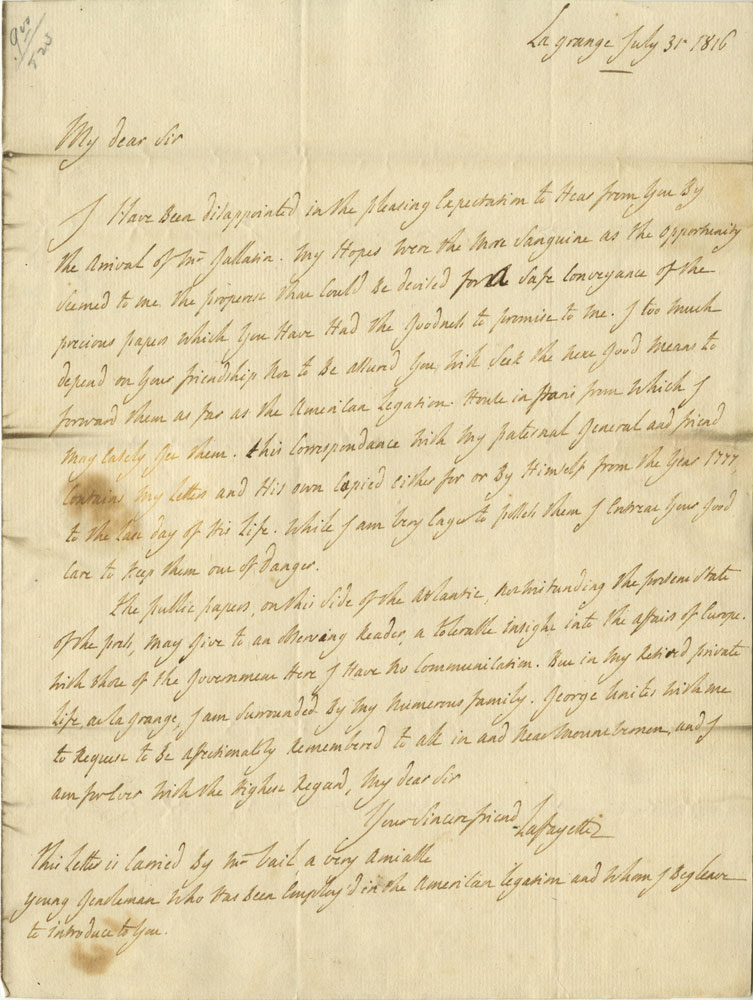 La grange July 31st 1816
My dear Sir
I Have Been disappointed in the pleasing Expectation to Hear from You By
the Arrival of Mr Gallatin. My Hopes Were the More Sanguine as the Opportunity
Seemed to me the properest that Could Be devised for a Safe Conveyance of the
precious papers which You Have Had the Goodness to promise to me. I too Much
depend on Your friendship Not to Be assured You Will Seek the next Good Means to
forward them as far as the American legation House in paris from Which I
May Easely Get them. this Correspondance With My paternal General and friend
Contains My letters and His own Copied either for or By Himself from the Year 1777,
to the last day of His life. While I am Very Eager to possess them I Entreat Your Good
Care to Keep them out of danger.
the public papers, on this Side of the Atlantic, Notwistanding the present State
of the press, May Give to an observing Reader, a tolerable insight into the affairs of Europe.
With those of the Government Here I Have No Communication. But in My Retired private
Life, at La grange, I am Surrounded By My Numerous family. George Unites With me
to Request to Be affectionately Remembered to all in and Near Mount Vernon, and I
am for Ever With the Highest Regard, My dear Sir
Your Sincere friend
Lafayette
this Letter is Carried By Mr Vail a Very Amiable
Young Gentleman Who Has Been Employ'd in the American legation and Whom I Beg leave
to introduce to You.